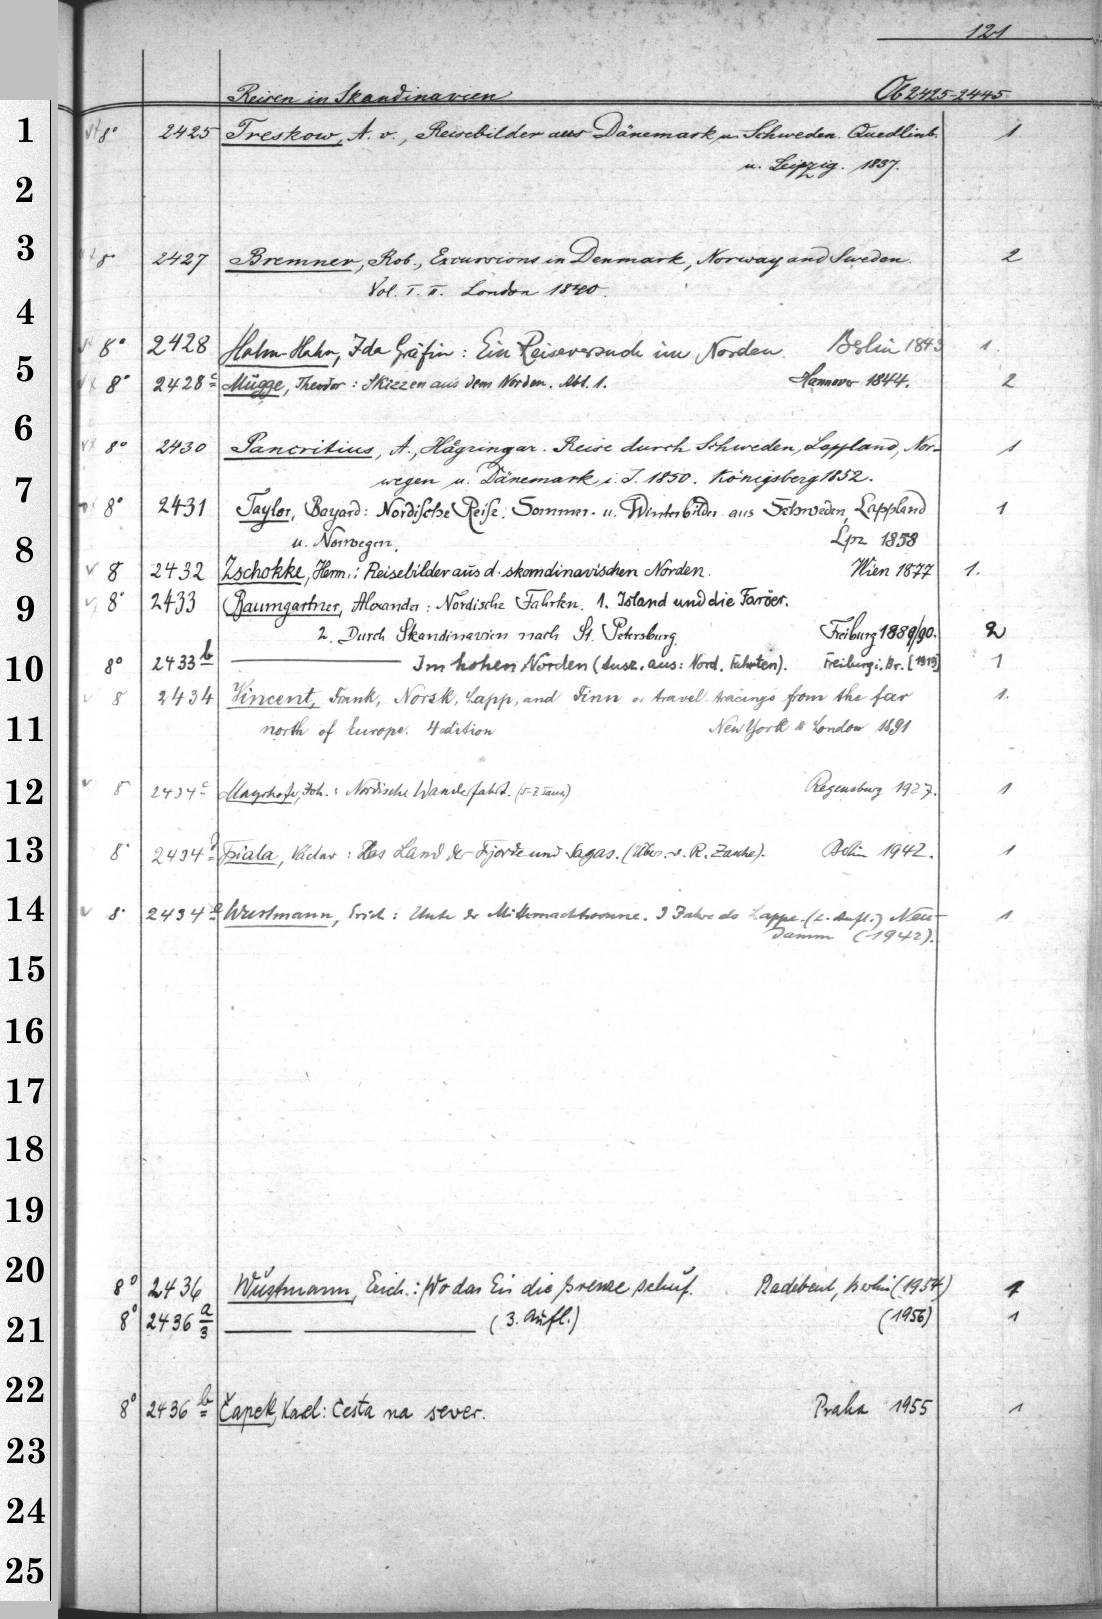 121
Reisen in Skandinavien Ob 2425-2445
1 8° 2425 Treskow, A. v., Reisebilder aus Dänemark u. Schweden. Quedlinb. 1
u. Leipzig. 1837.
2
3 8° 2427 Bremner, Rob., Excursions in Denmark, Norway and Sweden. 2
Vol. I. II. London 1840.
4
8° 2428 Hahn-Hahn, Ida Gräfin: Ein Reiseversuch im Norden. Berlin 1843 1.
5 8° 2428c Mügge, Theodor: Skizzen aus dem Norden. Abt. 1. Hannover 1844. 2
6 8° 2430 Pancritius, A., Hägringar. Reise durch Schweden, Lappland, Nor- 1
7 wegen u. Dänemark i. J. 1850. Königsberg 1852.
8° 2431 Taylor, Bayard: Nordische Reise. Sommer- u. Winterbilder aus Schweden, Lappland 1
8 u. Norwegen. Lpz 1858
8 2432 Zschokke, Herm.: Reisebilder aus d. skandinavischen Norden. Wien 1877 1.
9 8° 2433 Baumgartner, Alexander: Nordische Fahrten. 1. Island und die Faröer.
2. Durch Skandinavien nach St. Petersburg. Freiburg 1889/90. 2
10 8° 2433b Im hohen Norden (Ausz. aus: Nord. Fahrten). Freiburg i. Br. [1919] 1
8 2434 Vincent, Frank, Norsk, Lapp, and Finn or travel tracings from the far 1.
11 north of Europe. 4 edition New York & London 1891
12 8° 2434c Mayrhofer, Joh.: Nordische Wanderfahrt. Regensburg 1927. 1
13 8° 2434 Fiala, Václav: Das Land der Fjorde und Sagas. (Übers. v. R. Zasche). Berlin 1942. 1
14 8° 2434e Wustmann, Erich: Unter der Mitternachtsonne. 3 Jahre als Lappe. (2. Aufl.) Neu- 1
damm (1942).
15
16
17
18
19
20 8° 2436 Wustmann, Erich.: Wo das Eis die Grenze schuf. Radebeul, Berlin (1954) 1
21 8° 2436 a/3 (3. Aufl.) (1956) 1
22 8° 2436b Čapek, Karel: Cesta na sever. Praha 1955 1
23
24
25